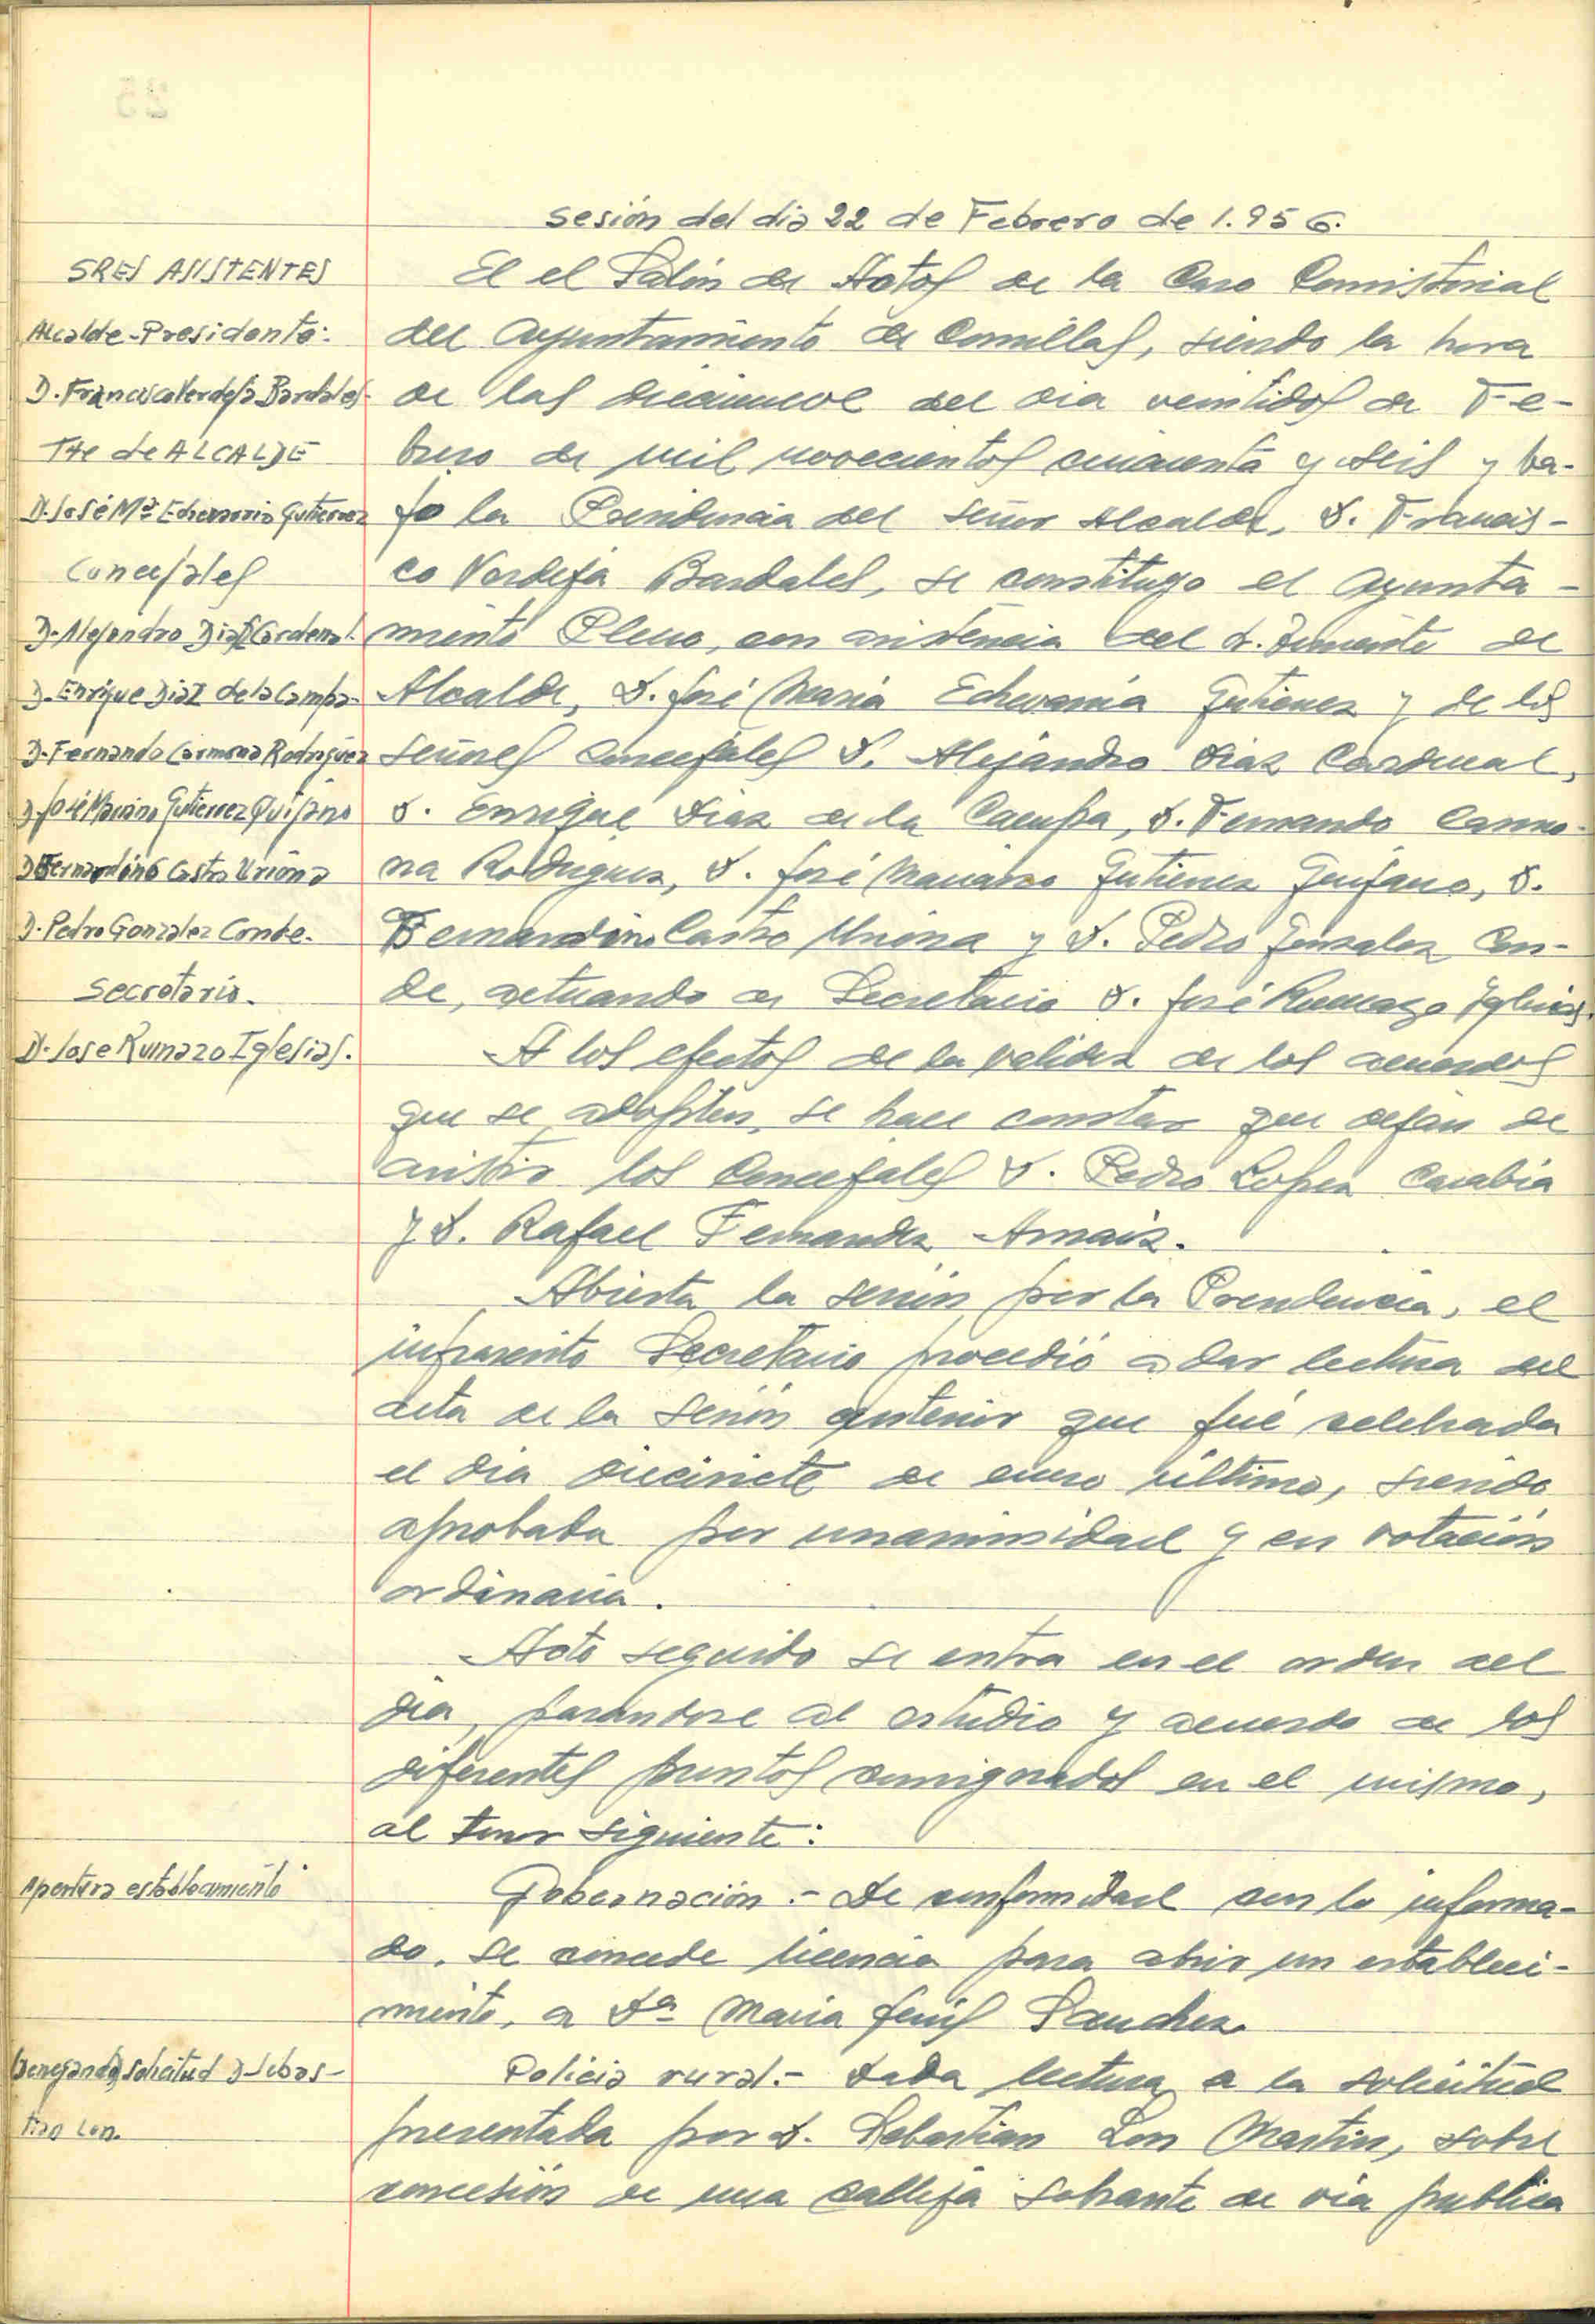 sesión del dia 22 de Febrero de 1.956.
SRES ASISTENTES
Alcalde-Presidente:
D. Francisco Verdeja Bardales
Tte de ALCALDE
D. José Mª Echevarria Gutierrez
Concejales
D. Alejandro Diaz Cardenal
D. Enrique Diaz de la Campa
D. Fernando Carmona Rodriguez
D. José Mariano Gutierrez Quijano
D. Bernardino Castro Uriona
D. Pedro Gonzalez Conde.
Secretario.
D. Jose Rumazo Iglesias.
El el Salón de Actos de la Casa Consistorial
del Ayuntamiento de Comillas, siendo la hora
de las diecinueve del dia veintidos de Fe-
brero de mil novecientos cincuenta y seis y ba-
jo la Presidencia del señor Alcalde, D. Francis-
co Verdeja Bardales, se constituyo el Ayunta-
miento Pleno, con asistencia del Sr. Teniente de
Alcalde, D. José Maria Echevarria Gutierrez y de los
señores Concejales D. Alejandro Diaz Cardenal,
D. Enrique Diaz de la Campa, D. Fernando Carmo-
na Rodriguez, D. José Mariano Gutierrez Quijano, D.
Bernardino Castro Uriona y D. Pedro Gonzalez Con-
de, actuando de Secretario D. José Rumazo Iglesias.
A los efectos de la validez de los acuerdos
que se adopten, se hace constar que dejan de
asistir los Concejales D. Pedro Lopez Carabia
y D. Rafael Fernandez Arnaiz.
Abierta la sesión por la Presidencia, el
infrascrito Secretario procedió a dar lectura del
acta de la sesión anterior que fué celebrada
el dia diecisiete de enero último, siendo
aprobada por unanimidad y en votación
ordinaria.
Acto seguido se entra en el orden del
dia, pasandose al estudio y acuerdo de los
diferentes puntos consignados en el mismo,
al tenor siguiente:
Apertura establecimiento
Gobernación.- De conformidad con lo informa-
do, se concede licencia para abrir un estableci-
miento, a Dª Maria Sanchez
Denegando solicitud D Sebas-
tian Lon.
Policia rural.- Dada lectura a la solicitud
presentada por D. Sebastian Lon Martin, sobre
concesión de una calleja sobrante de via publica